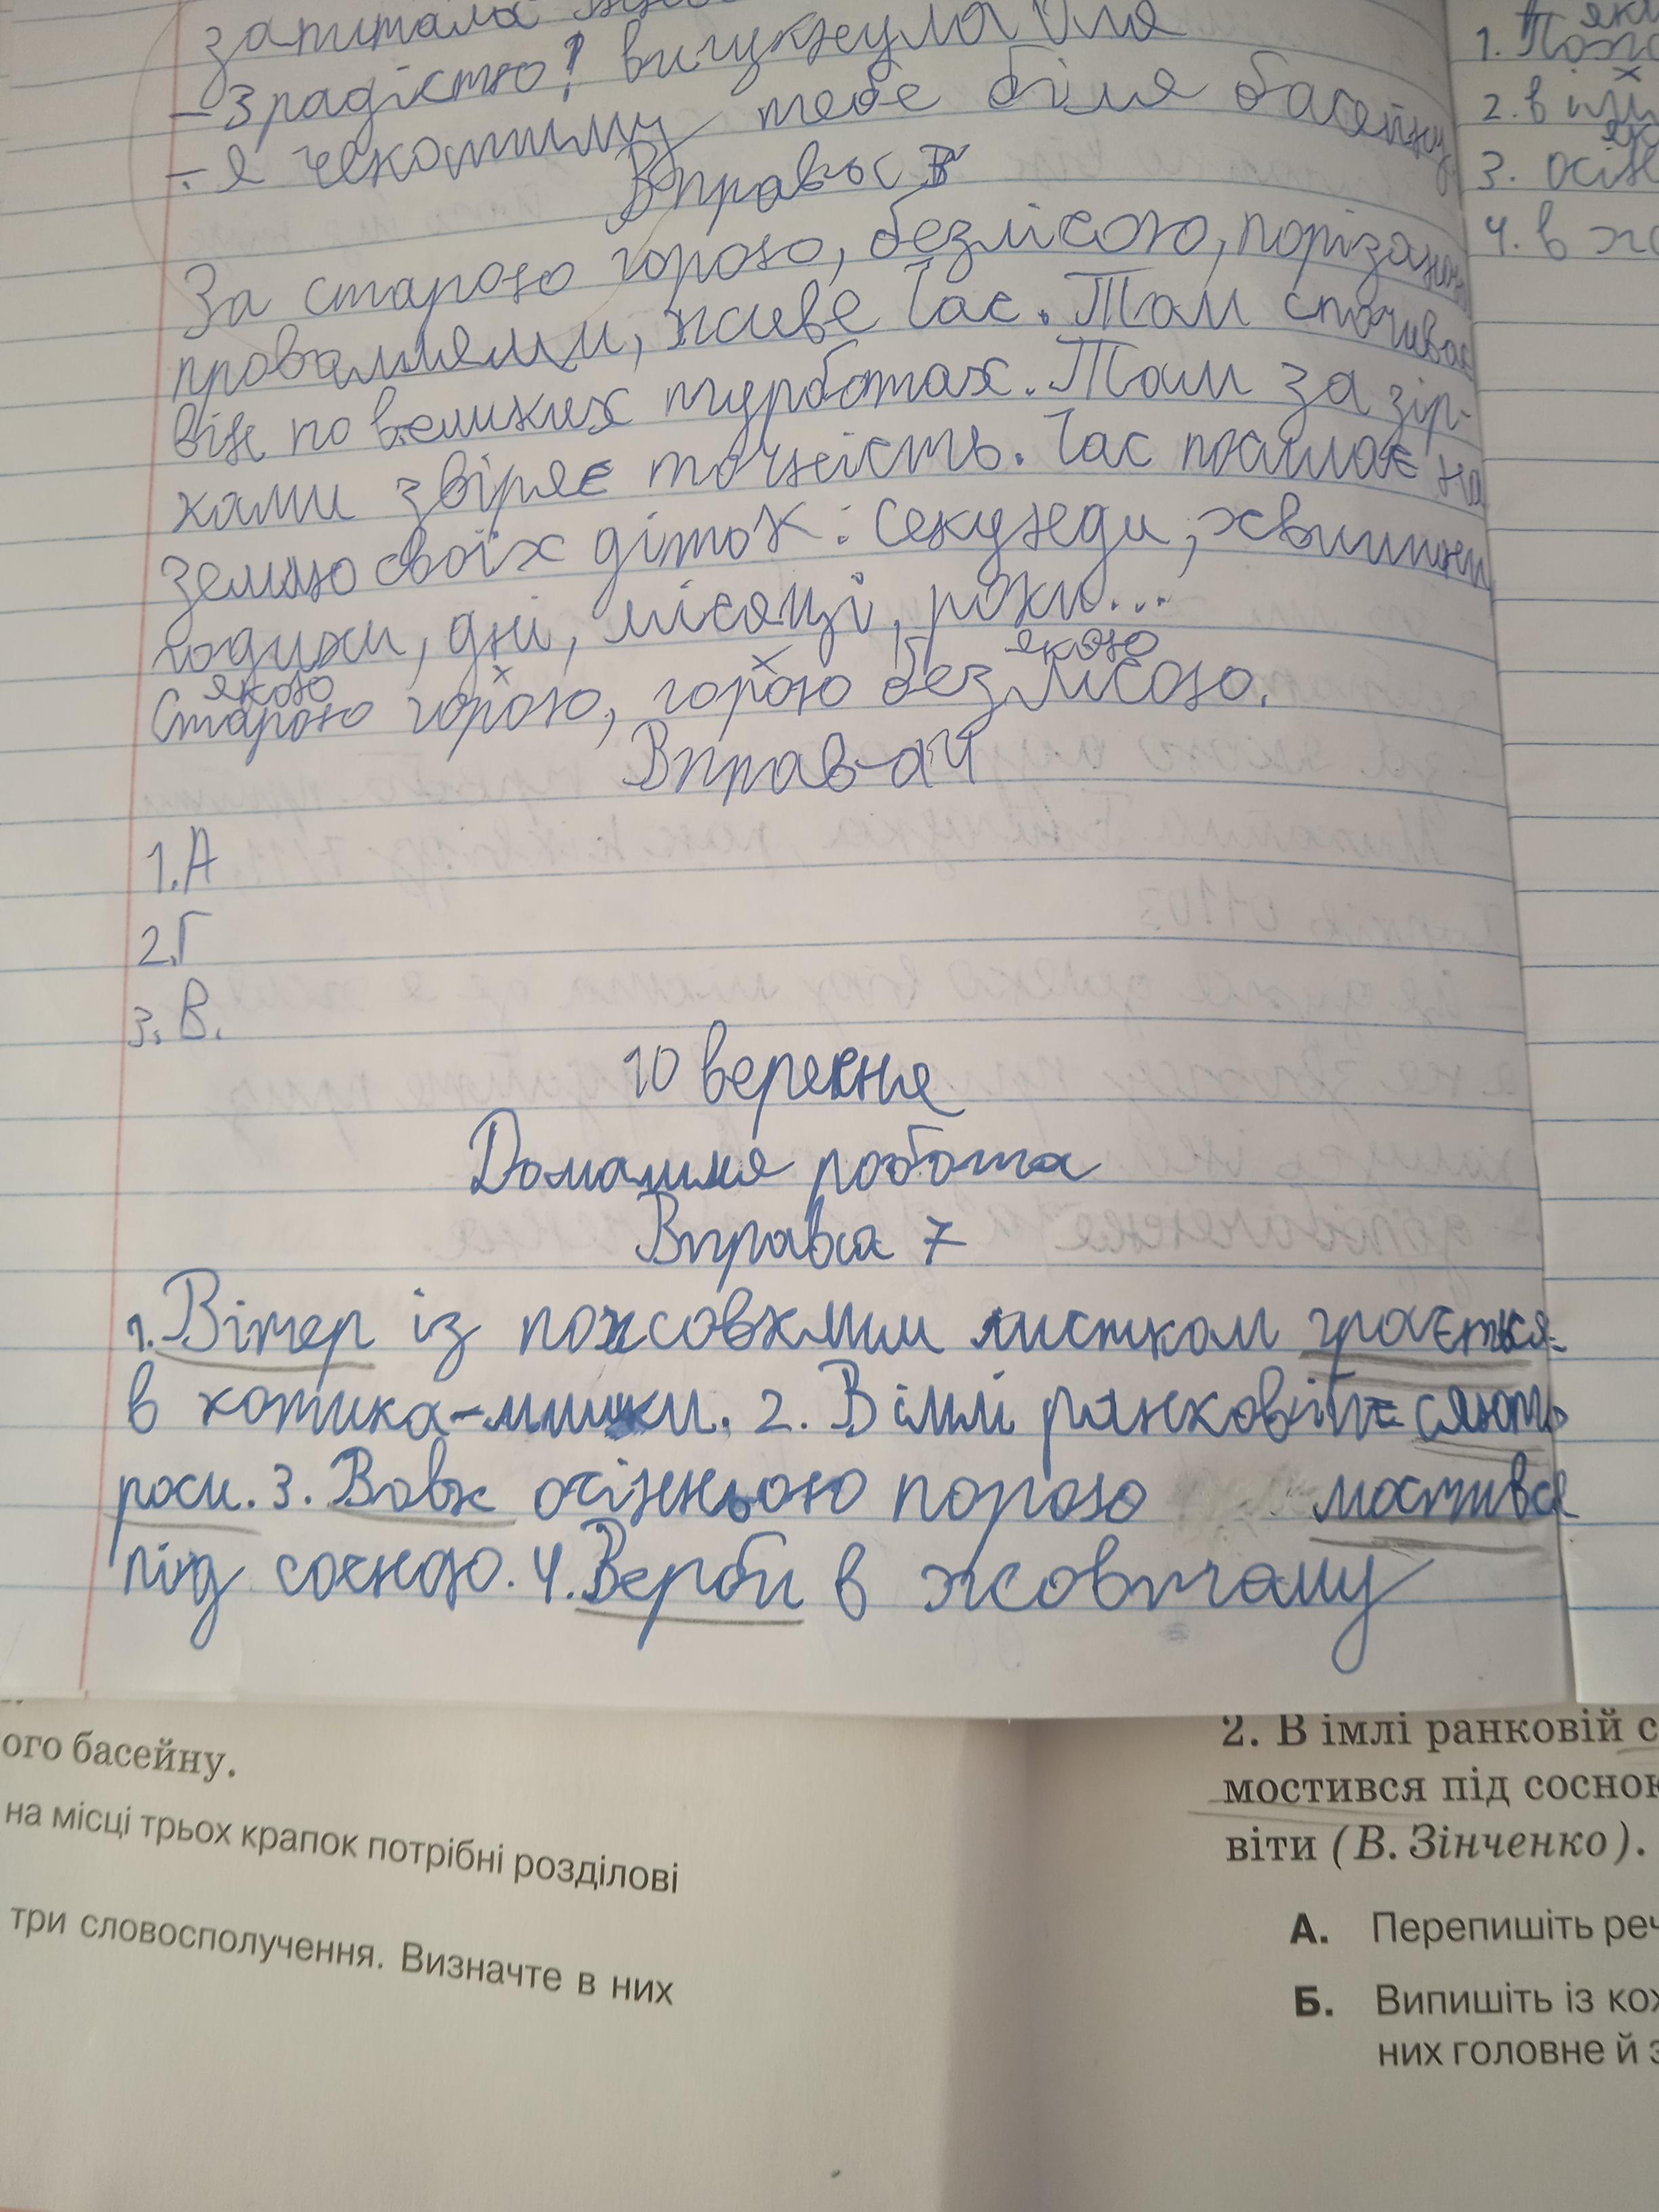 запитала
- З радістю! вигукнула Оля
- Я чекатиму тебе біля басейну
Вправа 3
За старою горою, безлісою, порізаною
проваллями, живе Час. Там спочиває
він по великих турботах. Там за зір-
ками звіряє точність. Час посилає на
землю своїх діток: секунди, хвилини
години, дні, місяці, роки...
якою х х якою
Старою горою, горою безлісою.
Вправа 4
1. А
2. Г
3. В.
10 вересня
Домашня робота
Вправа 7
1. Вітер із пожовклим листком грається
в котика-мишки. 2. В імлі ранковій сяють
роси. 3. Вовк осінньою порою мостився
під сосною. 4. Верби в жовтому
1.
2. в
3.
4. в
ого басейну.
на місці трьох крапок потрібні розділові
три словосполучення. Визначте в них
2. В імлі ранковій с
мостився під сосною
віти (В. Зінченко).
А. Перепишіть реч
Б. Випишіть із кож
них головне й з